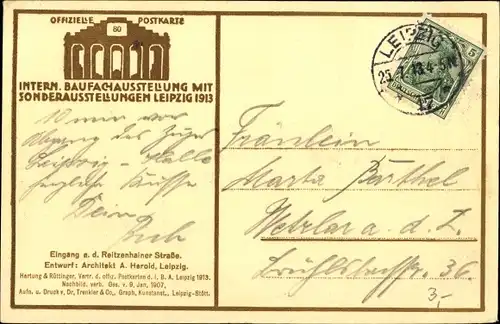 OFFIZIELLE POSTKARTE
80
INTERN. BAUFACHAUSSTELLUNG MIT
SONDERAUSSTELLUNGEN LEIPZIG 1913
10 min vor
Abgang des Zuges
Leipzig - Halle
herzliche Küsse
Dein
Eingang a. d. Reitzenhainer Straße.
Entwurf: Architekt A. Herold, Leipzig.
Hartung & Rüttinger, Verr. d. offiz. Postkarten d. I. B. A. Leipzig 1913.
Nachbild. verb. Ges. v. 9. Jan. 1907.
Aufn. u. Druck v. Dr. Trenkler & Co., Graph. Kunstanst., Leipzig-Stött.
LEIPZIG
25.7.13.4-5N.
* 17
5
Fräulein
Marta Barthel
Wetzlar a. d. L.
Brühlsbachstr. 36.
3,-